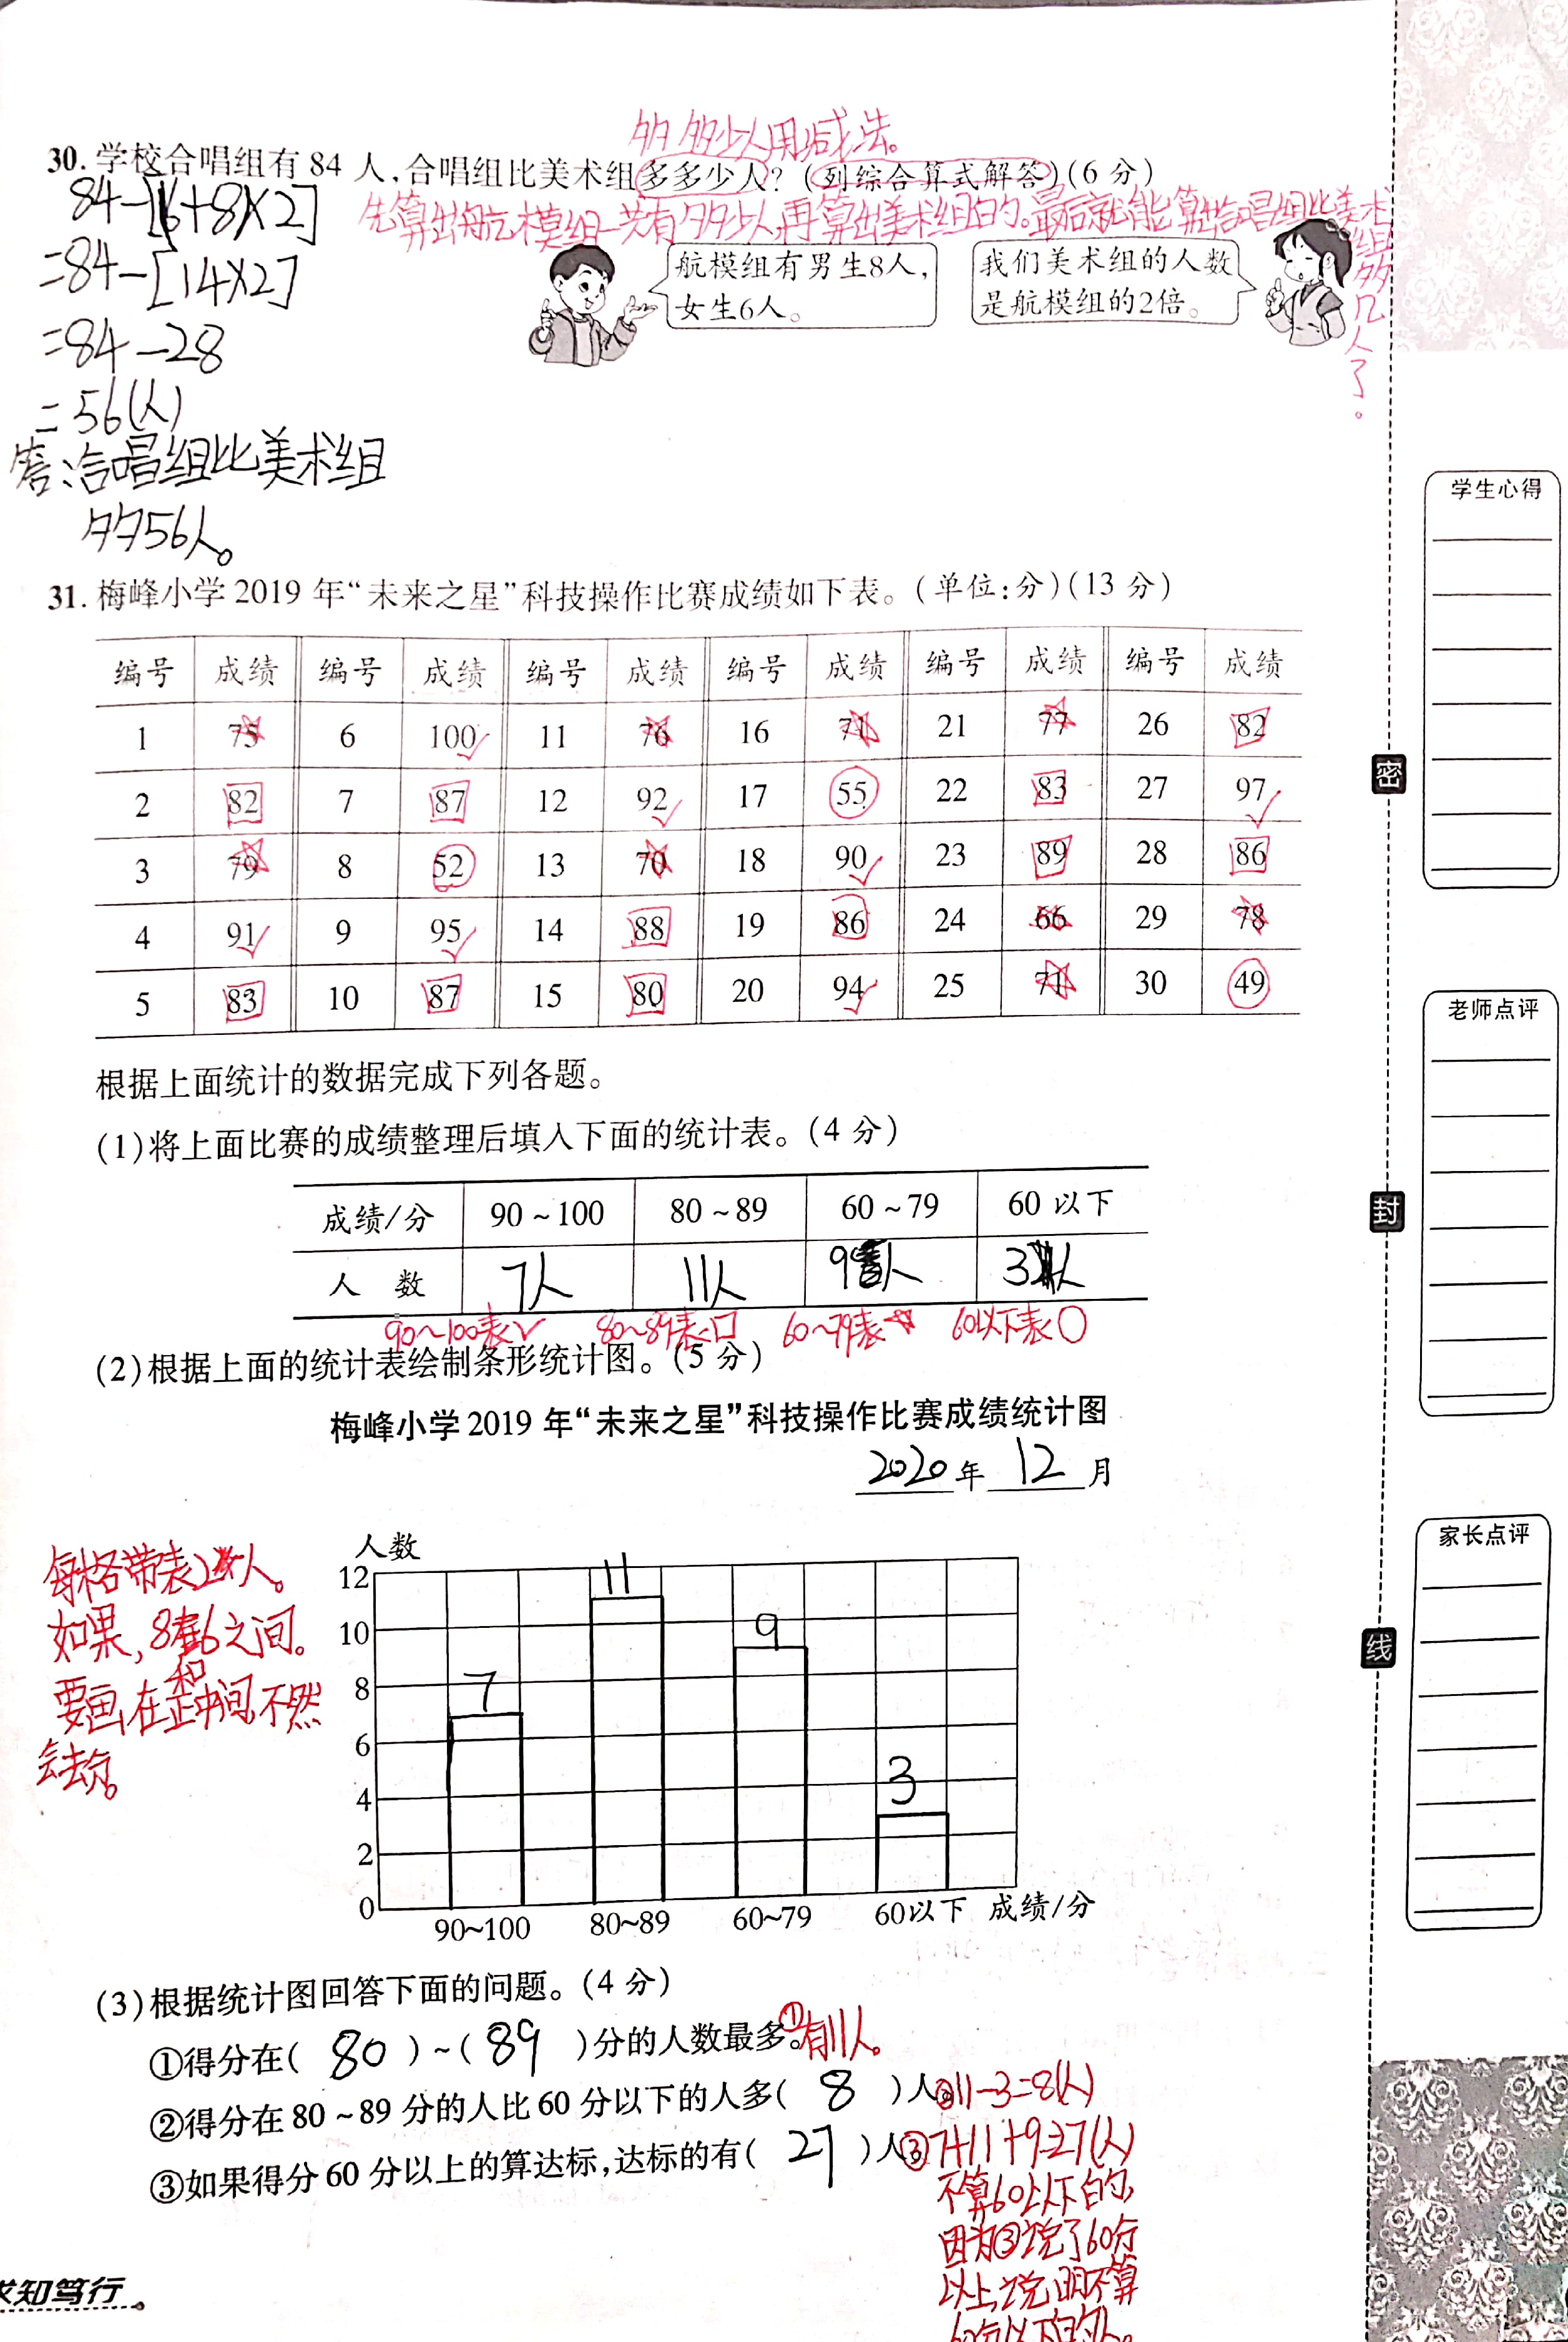 多多少人用减法。
30. 学校合唱组有 84 人,合唱组比美术组多多少人?(列综合算式解答)(6 分)
84-[(6+8)×2]
先算出航模组一共有多少人,再算出美术组的。最后就能算出合唱组比美术组多几人了。
=84-[14×2]
=84-28
=56(人)
答:合唱组比美术组
多56人。
航模组有男生8人,
女生6人。
我们美术组的人数
是航模组的2倍。
31. 梅峰小学 2019 年“未来之星”科技操作比赛成绩如下表。(单位:分)(13 分)
编号 成绩 编号 成绩 编号 成绩 编号 成绩 编号 成绩 编号 成绩
1 75 6 100 11 76 16 71 21 77 26 82
2 82 7 87 12 92 17 55 22 83 27 97
3 79 8 52 13 70 18 90 23 89 28 86
4 91 9 95 14 88 19 86 24 66 29 78
5 83 10 87 15 80 20 94 25 71 30 49
根据上面统计的数据完成下列各题。
(1)将上面比赛的成绩整理后填入下面的统计表。(4 分)
成绩/分 90~100 80~89 60~79 60 以下
人 数 7人 11人 9人 3人
90~100表√ 80~89表□ 60~79表☆ 60以下表○
(2)根据上面的统计表绘制条形统计图。(5 分)
梅峰小学 2019 年“未来之星”科技操作比赛成绩统计图
2020 年 12 月
每格带表2人。
如果,8和6之间。
要画在正中间,不然
会去分。
人数
12
10
8
6
4
2
0
7
11
9
3
90~100 80~89 60~79 60以下 成绩/分
(3)根据统计图回答下面的问题。(4 分)
①得分在( 80 )~( 89 )分的人数最多。①有11人。
②得分在 80~89 分的人比 60 分以下的人多( 8 )人。②11-3=8(人)
③如果得分 60 分以上的算达标,达标的有( 27 )人。③7+11+9=27(人)
不算60以下的,
因为③说了60分
以上,说明不算
60分以下的人。
学生心得
老师点评
家长点评
密
封
线
求知笃行